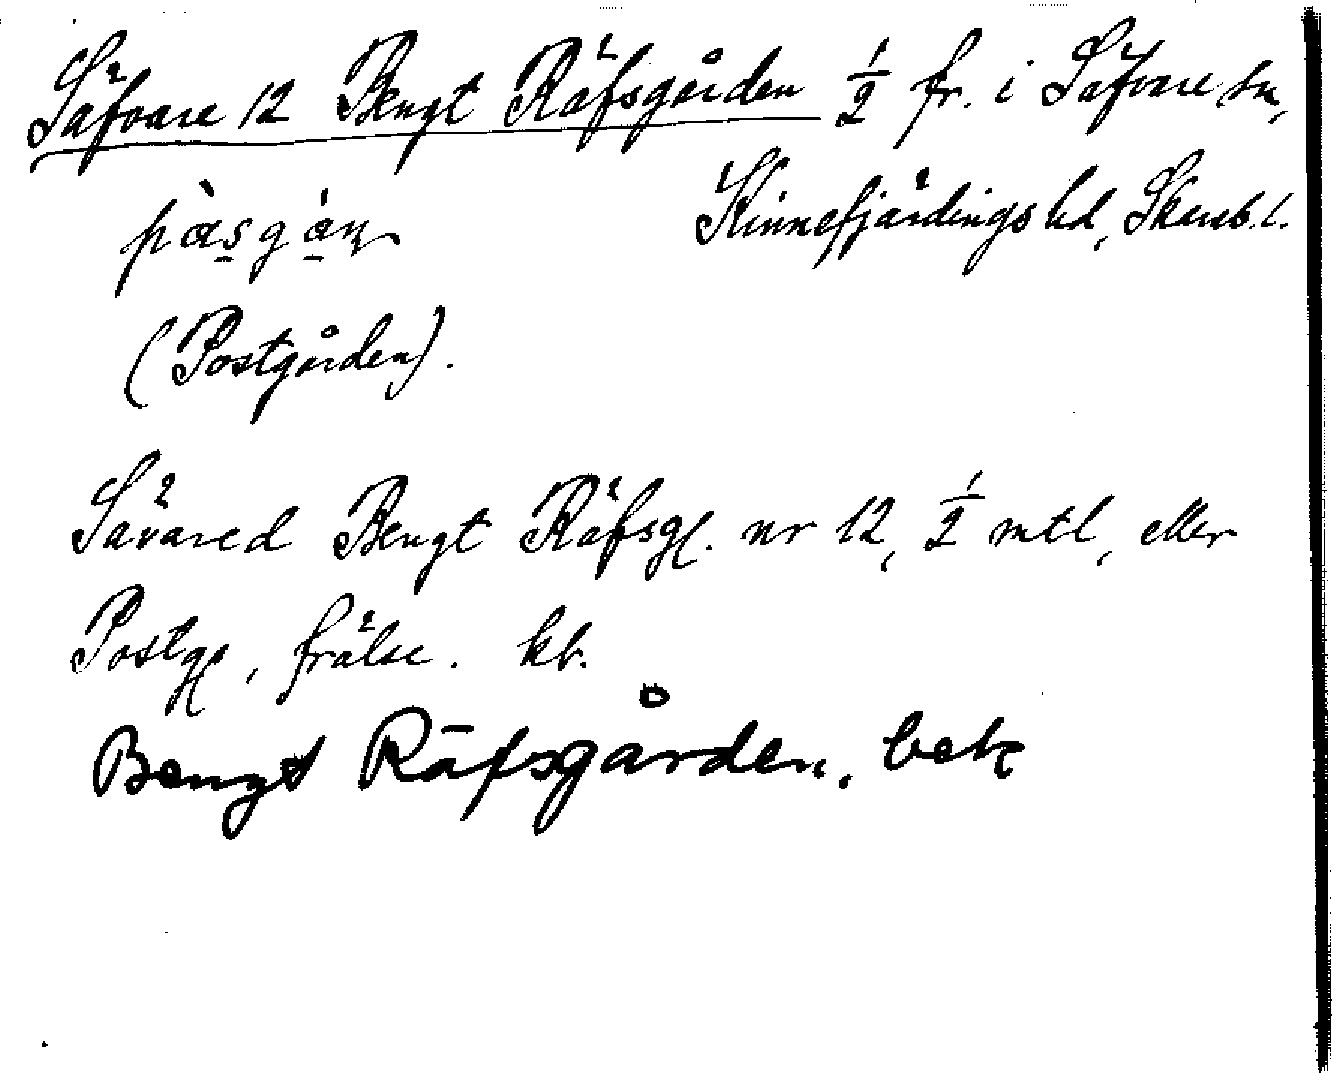 Säfvare 12 Bengt Räfsgården ½ fr. i Säfvare sn,
Kinnefjärdings hd, Skarab. l.
pàsgán
(Postgården).
Sävared Bengt Räfsg. nr 12, ½ mtl, eller
Postg, frälse. kb.
Bengt Räfsgården, bek